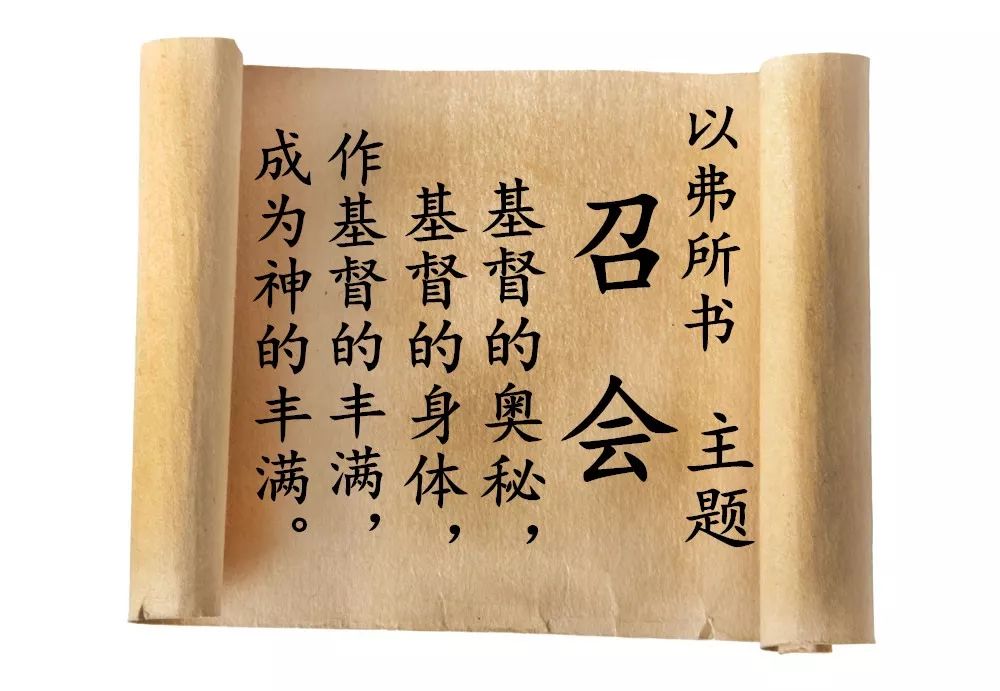 以弗所书 主题
召会
基督的奥秘，
基督的身体，
作基督的丰满，
成为神的丰满。